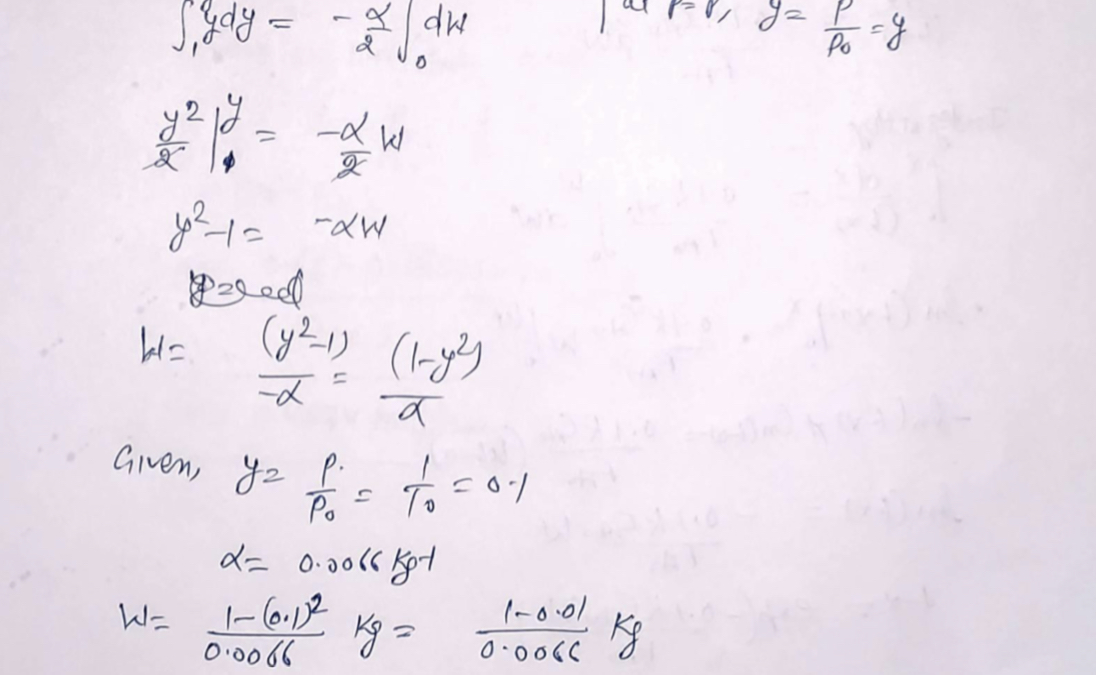 ∫₁^y ydy = -α/2 ∫₀ dW at P=P, y= P/P₀ =y
y²/2 |₁^y = -α/2 W
y²-1= -αW
W= (y²-1)/-α = (1-y²)/α
Given, y= P/P₀ = 1/10 = 0.1
α= 0.0066 Kg-1
W= 1-(0.1)²/0.0066 Kg = 1-0.01/0.0066 Kg